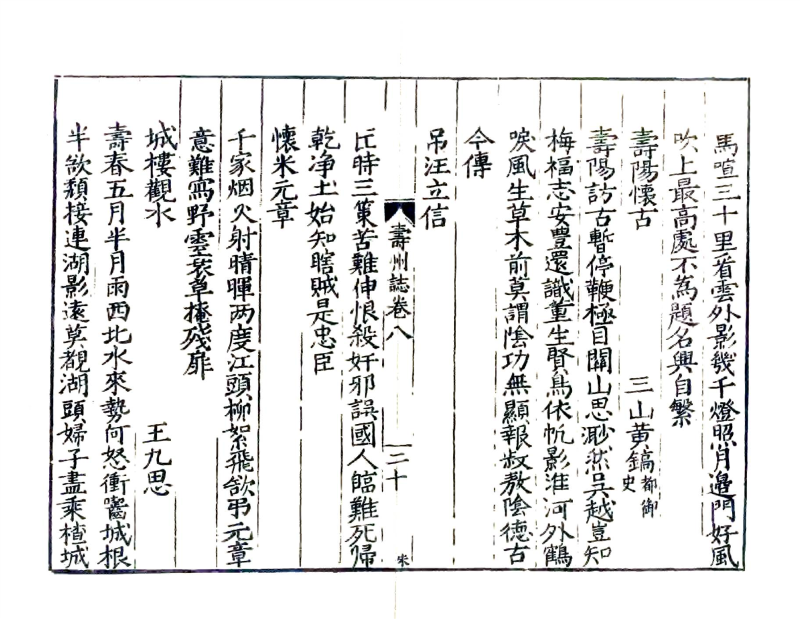 馬喧三十里看雲外影幾千燈照月邊門好風
吹上最高處不為題名興自繁
壽陽懷古　三山黄鎬都御史
壽陽訪古暫停鞭極目關山思渺然吳越豈知
梅福志安豐還識董生賢鳥依帆影淮河外鶴
唳風生草木前莫謂陰功無顯報叔敖陰德古
今傳
吊汪立信
壽州誌卷八
二十
朱
氐時三策苦難伸恨殺奸邪誤國人臨難死歸
乾净土始知瞎賊是忠臣
懷米元章
千家烟火射晴暉两度江頭柳絮飛欲弔元章
意難寫野雲衰草掩殘扉
城樓觀水　王九思
壽春五月半月雨西北水來勢何怒衝嚙城根
半欲頹接連湖影遠莫覩湖頭婦子盡乘楂城